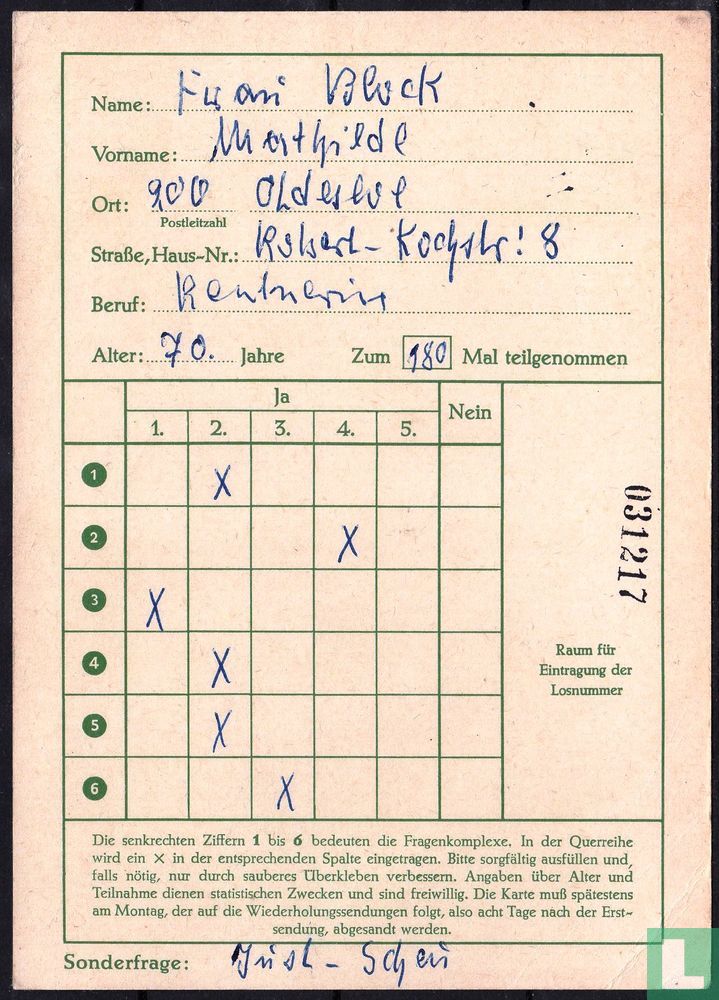 Name: Frau Block
Vorname: Mathilde
Ort: 200 Oldesloe
Postleitzahl
Straße, Haus-Nr.: Robert-Kochstr. 8
Beruf: Rentnerin
Alter: 70. Jahre Zum 180 Mal teilgenommen
Ja Nein
1. 2. 3. 4. 5.
1 X
2 X
3 X
4 X
5 X
6 X
031217
Raum für
Eintragung der
Losnummer
Die senkrechten Ziffern 1 bis 6 bedeuten die Fragenkomplexe. In der Querreihe
wird ein × in der entsprechenden Spalte eingetragen. Bitte sorgfältig ausfüllen und,
falls nötig, nur durch sauberes Überkleben verbessern. Angaben über Alter und
Teilnahme dienen statistischen Zwecken und sind freiwillig. Die Karte muß spätestens
am Montag, der auf die Wiederholungssendungen folgt, also acht Tage nach der Erst-
sendung, abgesandt werden.
Sonderfrage: Just - Scheu
L